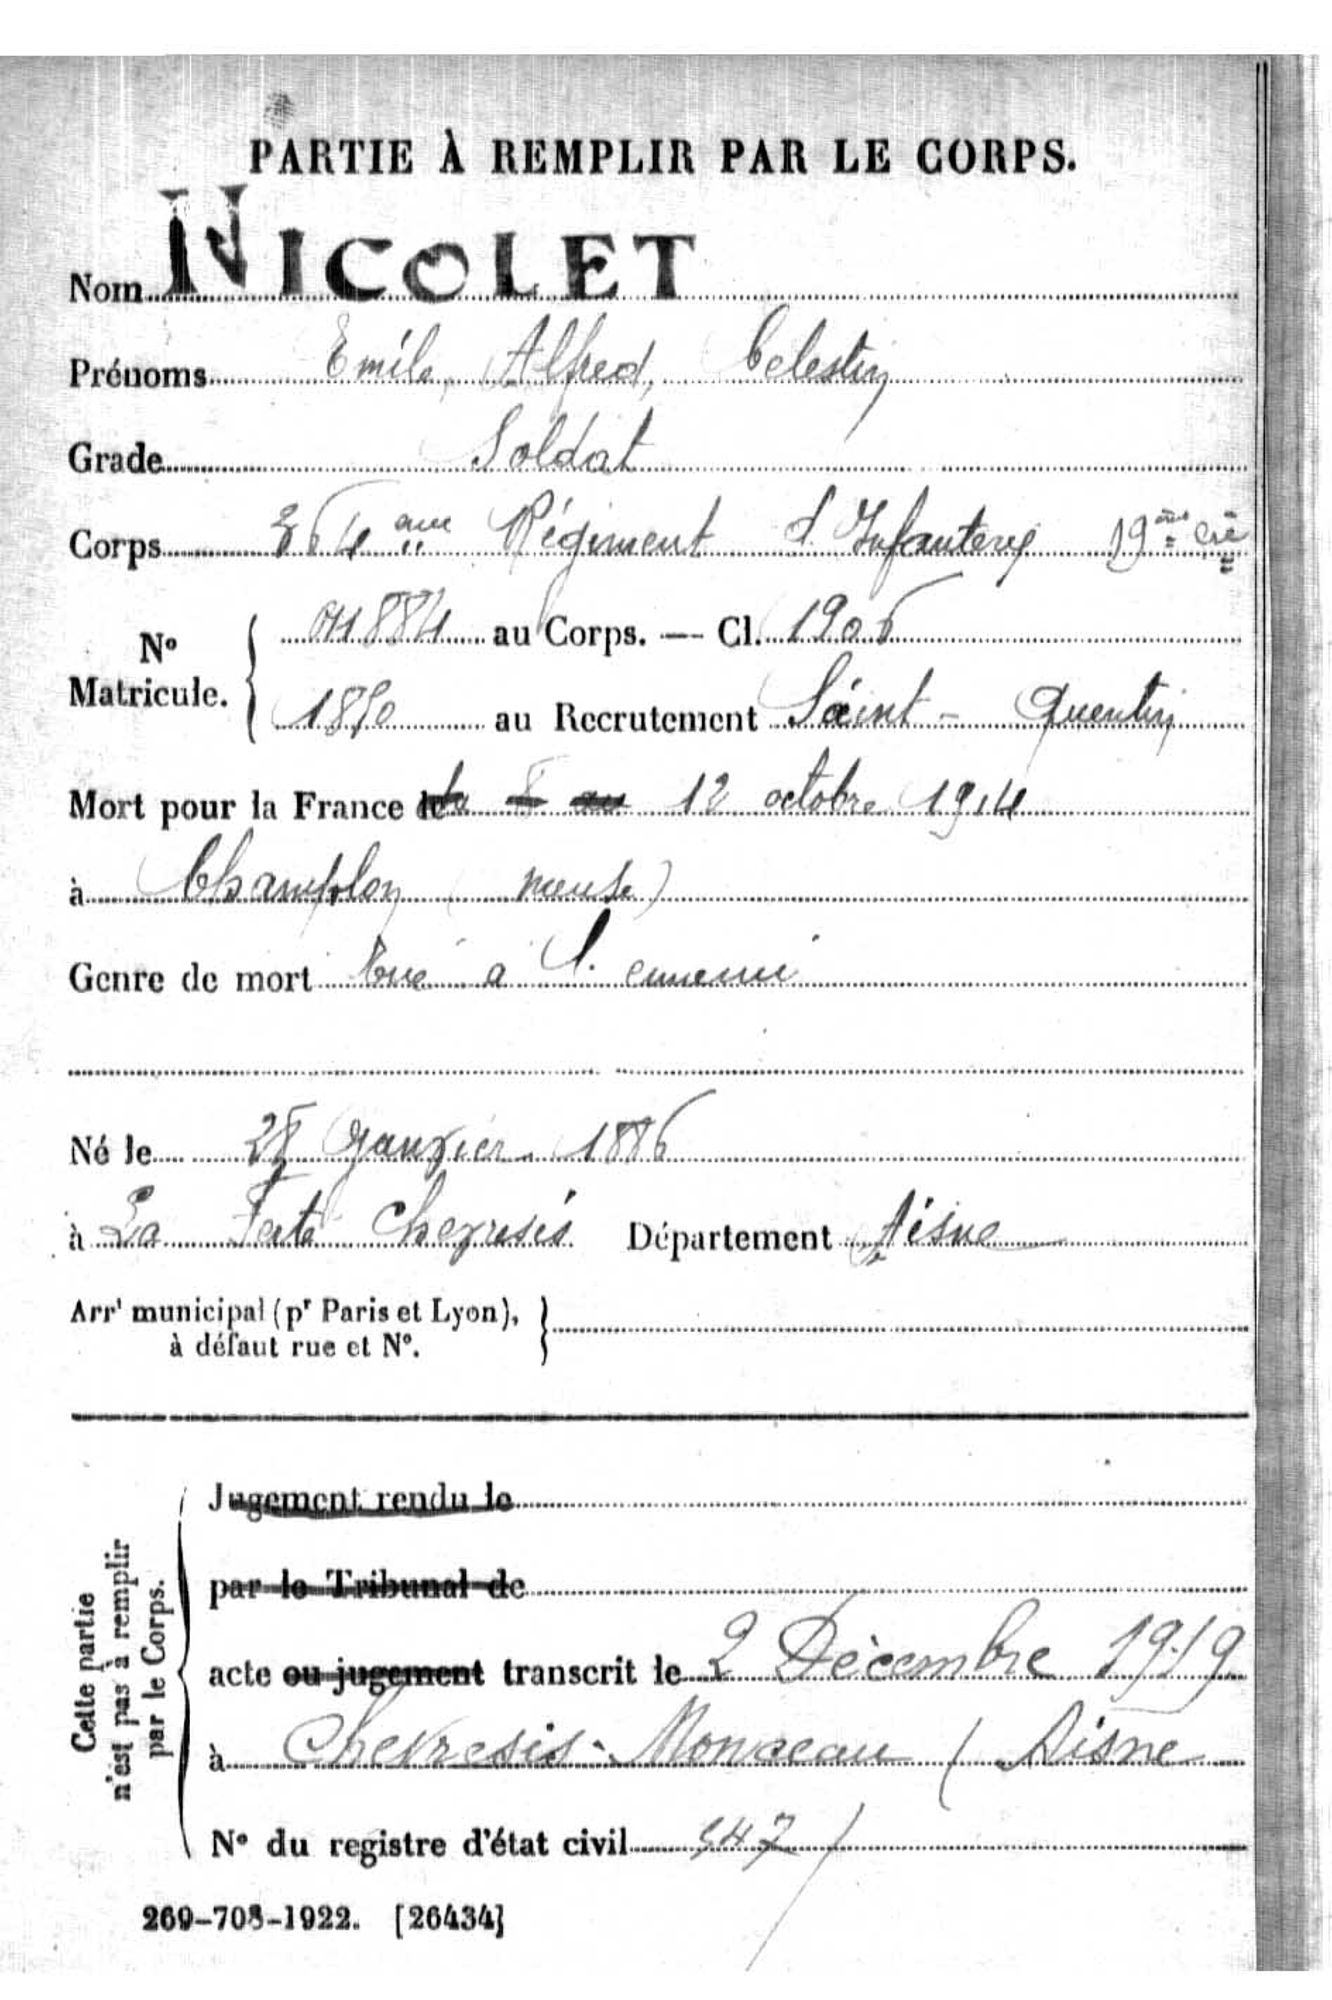 PARTIE À REMPLIR PAR LE CORPS.
Nom NICOLET
Prénoms Emile, Alfred, Celestin
Grade Soldat
Corps Régiment d'Infanterie 19ème Cie
No Matricule. { au Corps. — Cl. 1906
au Recrutement Saint-Quentin
Mort pour la France le 12 octobre 1914
à Champlon (Meuse)
Genre de mort Tué à l'ennemi
Né le 28 Janvier 1886
à La Ferté Chevresis Département Aisne
Arrt municipal (pr Paris et Lyon), }
à défaut rue et No.
Cette partie
n'est pas à remplir
par le Corps.
Jugement rendu le
par le Tribunal de
acte ou jugement transcrit le 2 Décembre 1919
à Chevresis-Monceau (Aisne
No du registre d'état civil 547)
269-708-1922. [26434]